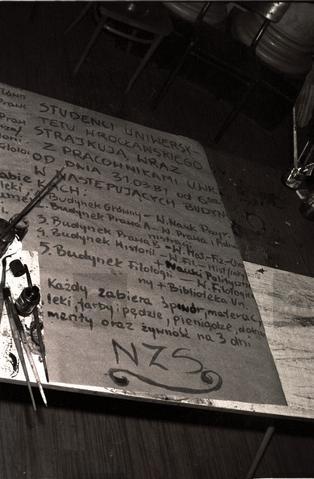 STUDENCI UNIWERSY-
TETU WROCŁAWSKIEGO
STRAJKUJĄ WRAZ
Z PRACOWNIKAMI UWR.
OD DNIA 31.03.81 od
W NASTĘPUJĄCYCH BUDYN-
KACH:
1. Budynek Główny - W. Nauk Przyr.
2. Budynek Prawa A - W. Prawa i
3. Budynek Prawa B - W. Mat-Fiz-
4. Budynek Historii - W. Fil-Hist
+ Nauki Polityczne
5. Budynek Filologii - W. Filologi-
ny + Biblioteka Un.
Każdy zabiera śpiwór, materac
leki, farby i pędzle, pieniądze, doku-
menty oraz żywność na 3 dni
NZS